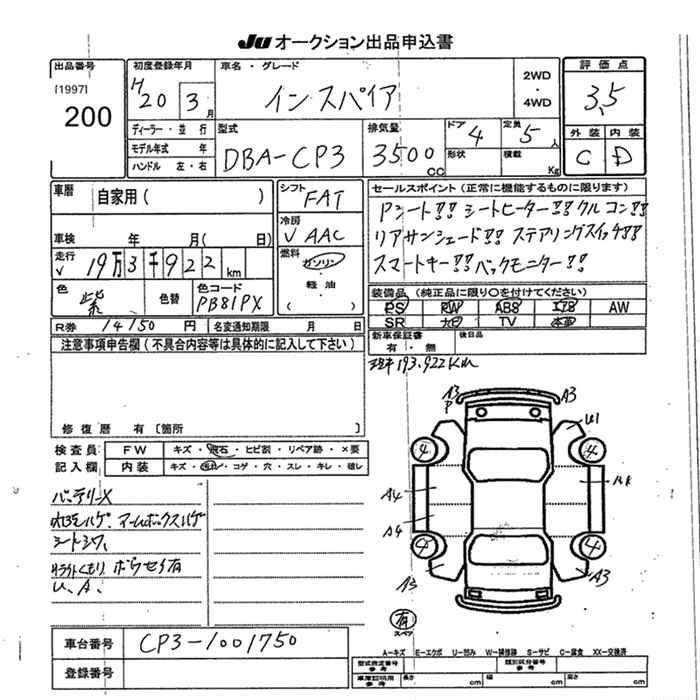 JU オークション出品申込書
出品番号
[1997]
200
初度登録年月
H20年 3月
車名・グレード
インスパイア
2WD
・
4WD
評価点
3.5
外装 内装
C D
ディーラー・並行
モデル年式 年
ハンドル 左・右
型式
DBA-CP3
排気量
3500CC
ドア 4
形状
定員 5人
積載 Kg
車歴 自家用( )
シフト FAT
車検 年 月( 日)
冷房 ✓ AAC
走行 ✓ 19万3千922km
燃料 ガソリン
・
軽油
( )
色 紫
色替
色コード
PB81PX
R券 14150円
名変通知期限 月 日
セールスポイント(正常に機能するものに限ります)
Pシート!! シートヒーター!! クルコン!!
リアサンシェード!! ステアリングスイッチ!!
スマートキー!! バックモニター!!
装備品(純正品に限り○を付けてください)
PS PW ABS エアB AW
SR ナビ TV 本革
新車保証書
有・無
後日品
注意事項申告欄(不具合内容等は具体的に記入して下さい)
修復歴 有〔箇所 〕
193.922Km
検査員
記入欄
FW キズ・飛石・ヒビ割・リペア跡・×要
内装 キズ・汚れ・コゲ・穴・スレ・キレ・破レ
バッテリーX
内張ハゲ、アームボックスハゲ
シートシワ、
ライトくもり ボウセイ有
U、A、
A3
P
A3
U1
4
4
A4
A4
4
4
A3
A3
有
スペア
車台番号 CP3-1001750
登録番号
A－キズ E－エクボ U－凹み W－補修跡 S－サビ C－腐食 XX－交換済
型式指定番号
参考
類別区分番号
参考
車庫証明用
参考
長さ cm
幅 cm
高さ cm